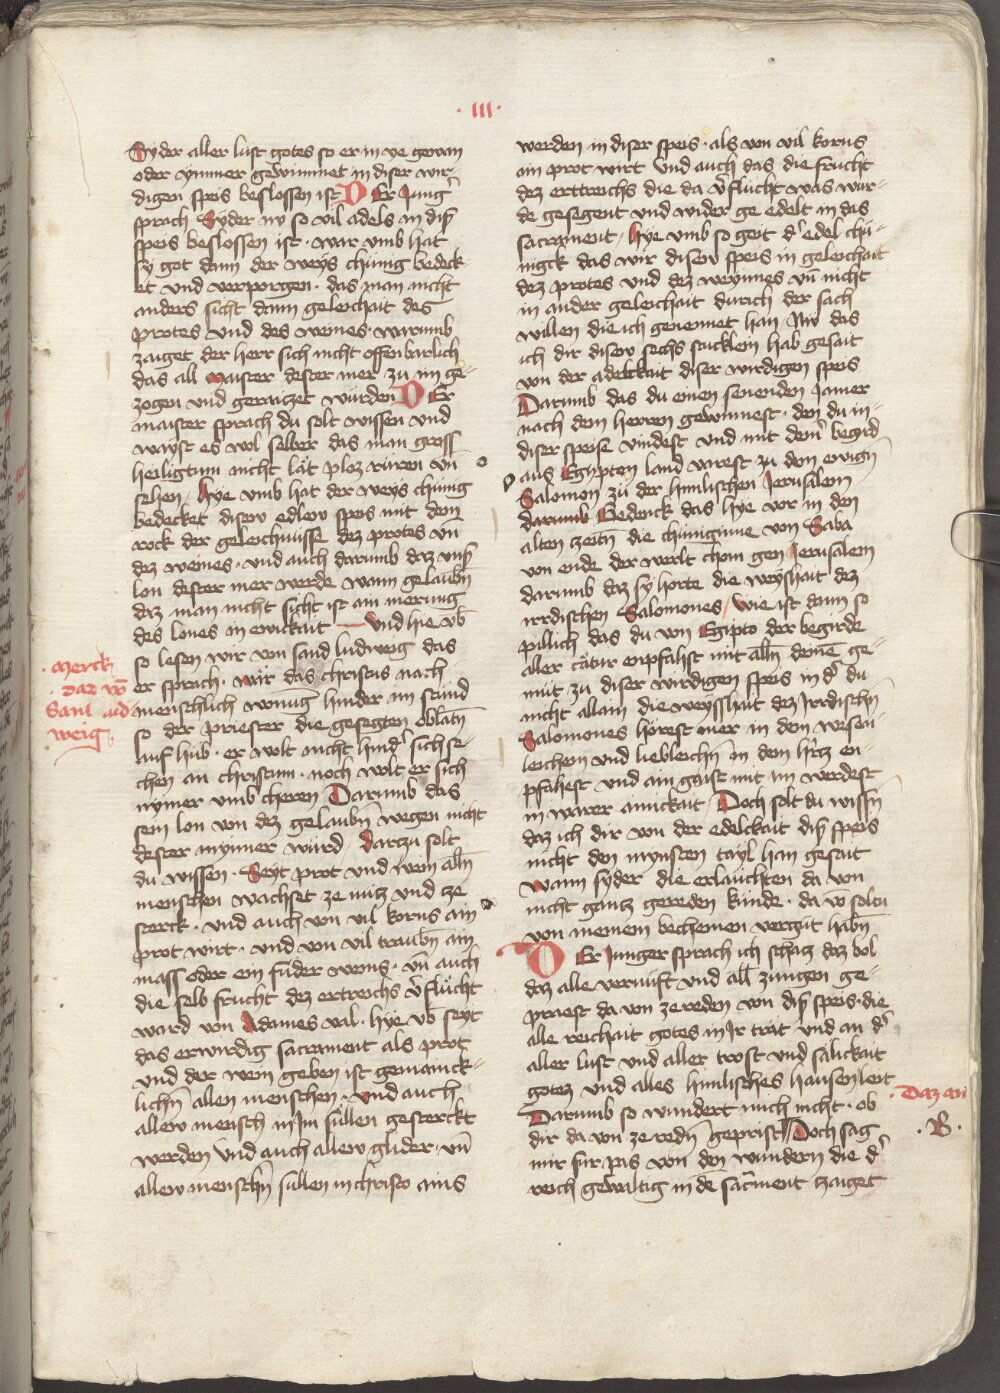 · III ·
Syder aller lust gotes so er in ye gewan
oder ymmer gewinnet in diser wir-
digen speis beslossen ist Der Jung
sprach Syder nv so vil adels in diser
speis beslossen ist · war vmb hat
sy got dann der weys chünig bedeck-
et vnd verporgen · das man nicht
anders sicht dann geleichait des
protes vnd des weines · warumb
zaiget der herr sich nicht offenbarlich
das all maister dester mer zu im ge-
zogen vnd geraitzet würden Der
maister sprach du solt wissen vnd
wayst es wol selber das man gross
heiligtum nicht lät ploz rüren vn̄
sehen / Hye vmb hat der weys chünig
bedecket disew edlew speis mit dem
rock der geleichnüsse dez protes vn̄
dez weines · vnd auch darumb daz vnser
lon dester mer werde wann gelaubn̄
daz man nicht sicht ist ain merung
des lones in ewickait — vnd hie vb̄
so lesen wir von sand ludweig das
er sprach · wär das christus nach
menschlich wonūg hinder im stünd
so der priester die gesegten oblatn̄
auf hüb · er wolt nicht hind' sich se-
chen an christum · noch wolt er sich
nymer vmb cheren Darumb das
sein lon von dez gelaubn̄ wegen nicht
dester mynner würd / darczu solt
du wissen · Seyt prot vnd wein alln̄
menschen wachset ze nütz vnd ze
sterck · vnd auch von vil korns ain
prot wirt · vnd von vil traubn̄ ain
mass oder ein fuder weins · vn̄ auch
die selb frucht dez ertreichs v'flücht
ward von Adames val · hye vb seyt
das erwirdig sacrament als prot
vnd der wein geben ist gemainick-
lichn̄ allen menschen · vnd auch
allew mensch in im süllen gesterckt
werden vnd auch allew glider · vn̄
allew menschn̄ süllen in christo ains
· Merck
· daz vō
Sant lud
weig ·
werden in diser speis · als von vil korns
ain prot wirt vnd auch das die frucht
dez erttreichs die da v'flücht was wur-
de gesegent vnd wider ge edelt in das
sacrament / hye vmb so geit d' edel chü-
nigck das wir disew speis in geleichait
dez protes vnd dez weynnes vn̄ nicht
in ander geleichait durich der sach
willen die ich genennet han Nw das
ich dir disew sechs stucklein hab gesait
von der adelckait diser wirdigen speis
Darumb das du einen senenden Jamer
nach dem herren gewinnest · den du in-
diser speise vindest vnd mit dem begird
aus Egypten land varest zu dem ewign̄
Salomon zu der himlischen Jerusalem
darumb Bedenck das hye vor in den
alten zeitn̄ die chüniginne von Saba
von ende der werlt chom gen Jerusalem
darumb daz sy horte die weyshait dez
irrdischen Salomones / wie ist dann so
pillich das du von Egipto der begirde
aller cätur enpfahst mit alln̄ deine ge-
müt zu diser wirdigen speis in d' du
nicht allain die weysshait dez Irrdischn̄
Salomones hörest ouer in dem wesen-
leichem vnd liebleichn̄ in dem hertz en-
pfahest vnd ain gaist mit im werdest
in warer ainickait / Doch solt du wissn̄
daz ich dir von der edelckait diser speis
nicht den mynsten tayl han gesait
wann syder die erlauchten da von
nicht gantz gereden künde · da vō soltu
von meinem bechennen vergüt habn̄
Der Junger sprach ich schatz daz wol
daz alle vernuft vnd all zungen ge-
praest da von ze reden von diser speis · die
alle reichait gotes in Jr trät vnd an d'
aller lust vnd aller trost vnd sälickait
gotez vnd alles himlisches hausen leit
Darumb so wundert mich nicht · ob
dir da von ze redn̄ geprist Doch sag
mir für pas von den wundern die d'
reich gewaltig in dē sacrment zaiget
· Daz an
· B ·